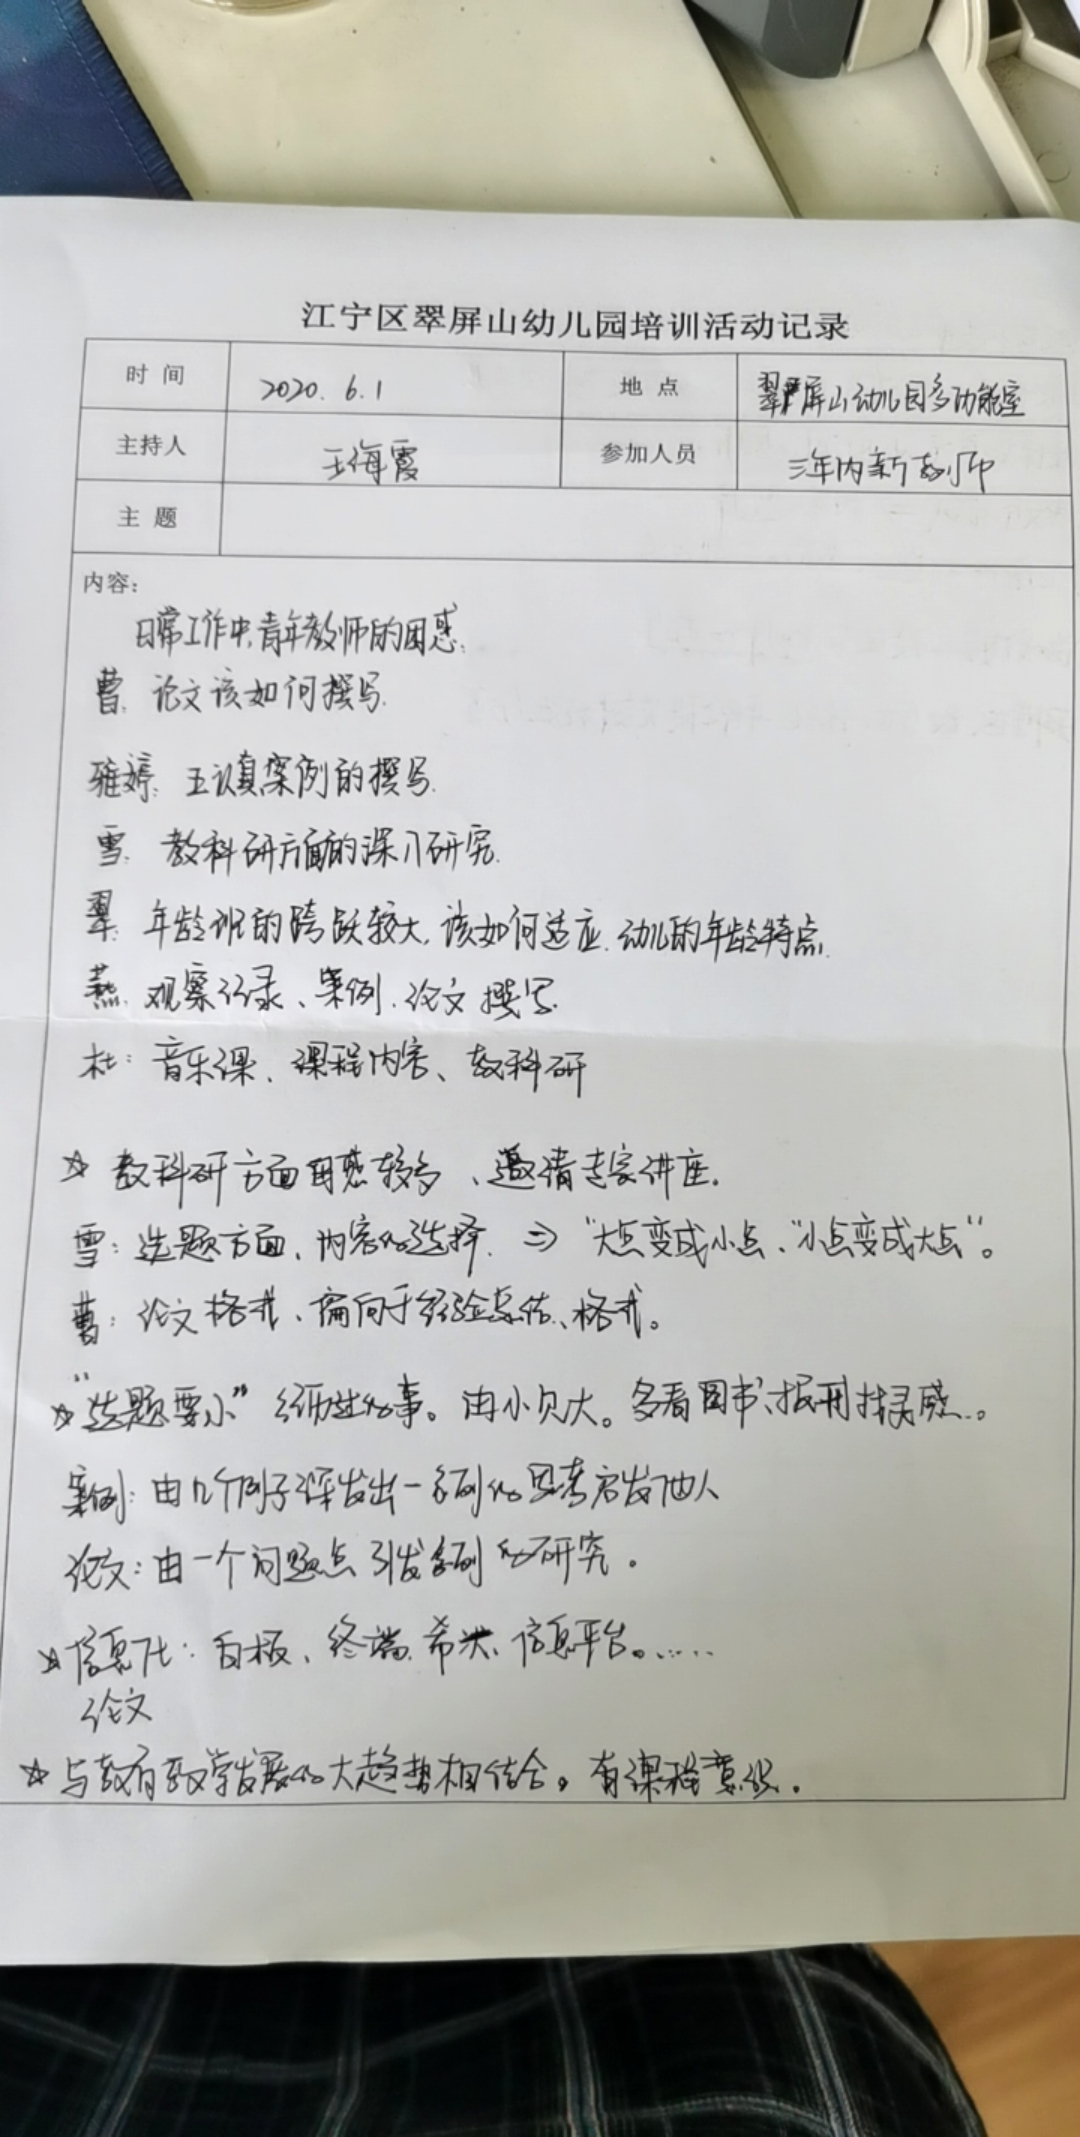 江宁区翠屏山幼儿园培训活动记录
时间 2020.6.1 地点 翠屏山幼儿园多功能室
主持人 王海霞 参加人员 三年内新教师
主题
内容:
日常工作中,青年教师的困惑:
曹: 论文该如何撰写.
雅婷: 五认真案例的撰写.
雪: 教科研方面的深入研究.
翠: 年龄班的跨跃较大,该如何适应.幼儿的年龄特点.
燕: 观察记录、案例.论文撰写.
杜: 音乐课、课程内容、教科研
☆ 教科研方面困惑较多、邀请专家讲座.
雪: 选题方面、内容的选择. ⇒ "大点变成小点、"小点变成大点"。
曹: 论文格式、偏向于经验总结、格式。
☆"选题要小" 经历过的事。由小见大。多看图书、报刊找灵感...。
案例: 由几个例子深发出一系列的思考启发他人
论文: 由一个问题点引发系列的研究。
☆信息化: 白板、终端.希沃、信息平台。......
论文
☆ 与教育教学发展的大趋势相结合。有课程意识.